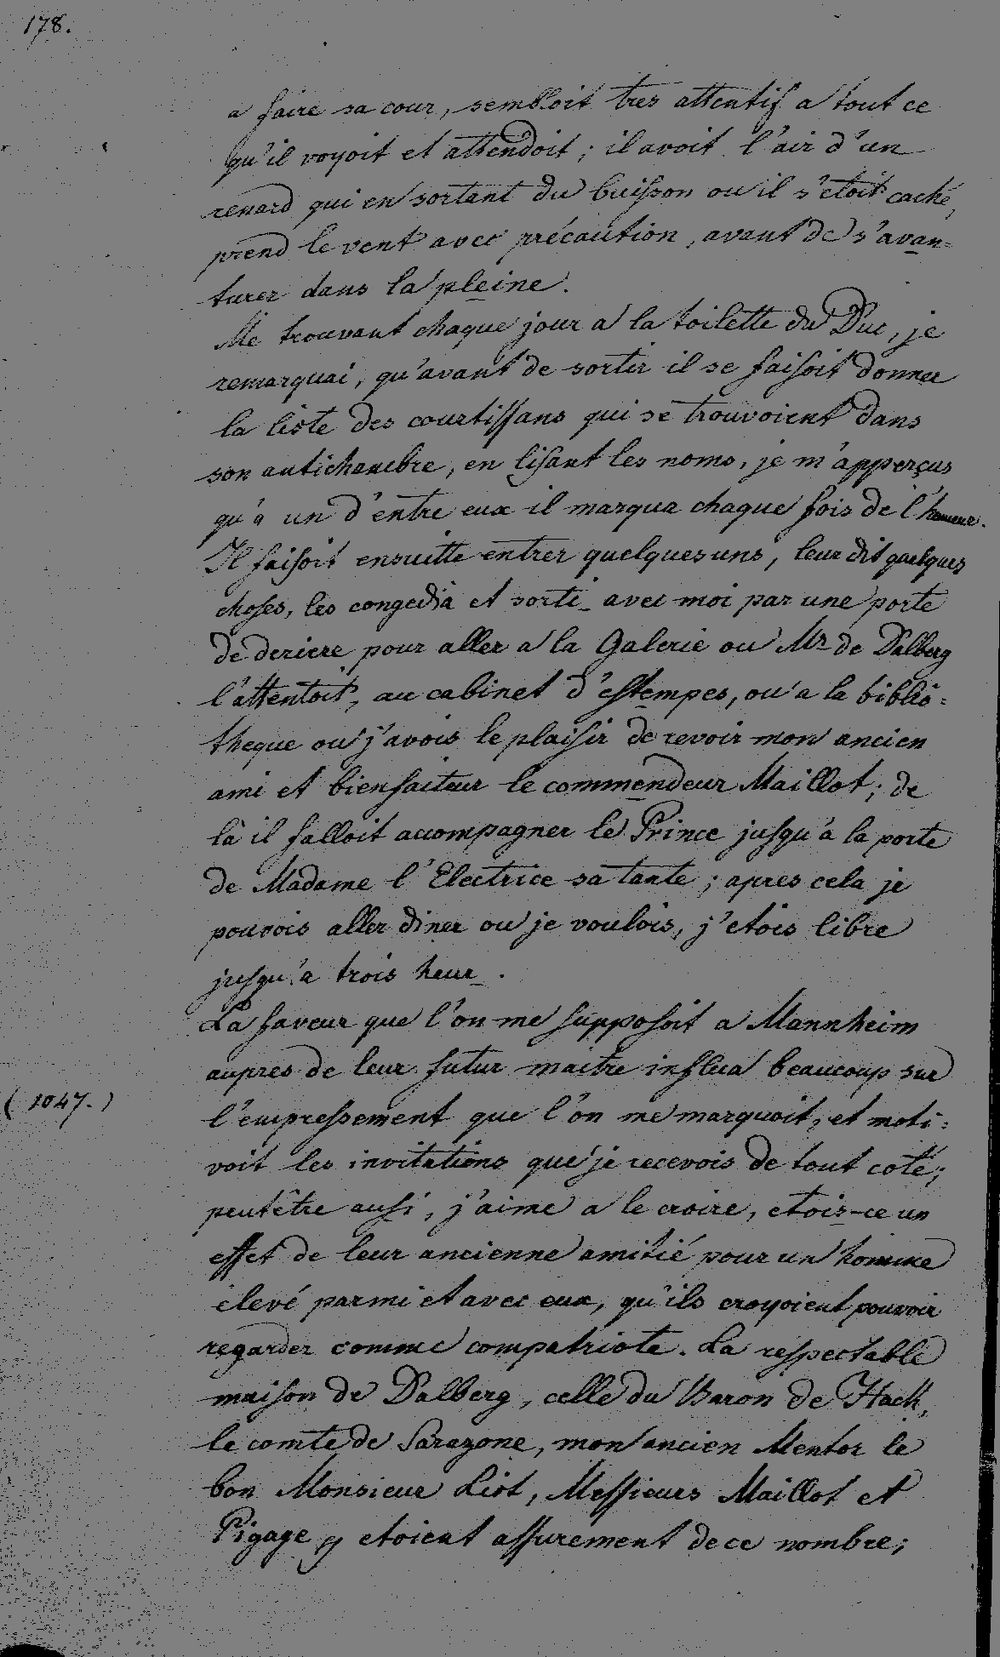 178.
a faire sa cour, sembloit tres attentif a tout ce
qu'il voyoit et attendoit; il avoit l'air d'un
renard qui en sortant du buisson ou il s'etoit caché,
prend le vent avec précaution, avant de s'avan=
turer dans la pleine.
Me trouvant chaque jour a la toilette du Duc, je
remarquai, qu'avant de sortir il se faisoit donner
la liste des courtissans qui se trouvoient dans
son antichambre, en lisant les noms, je m'apperçus
qu'a un d'entre eux il marqua chaque fois de l'humeur.
Il faisoit ensuitte entrer quelques uns, leur dit quelques
choses, les congedia et sorti avec moi par une porte
de deriere pour aller a la Galerie ou Mr de Dalberg
l'attentoit, au cabinet d'estempes, ou a la biblio=
theque ou j'avois le plaisir de revoir mon ancien
ami et bienfaiteur le commendeur Maillot; de
là il falloit accompagner le Prince jusqu'a la porte
de Madame l'Electrice sa tante; apres cela je
pouvois aller diner ou je voulois, j'etois libre
jusqu'a trois heur.
La faveur que l'on me supposoit a Mannheim
aupres de leur futur maitre influa beaucoup sur
(1047.)
l'empressement que l'on me marquoit, et moti=
voit les invitations que je recevois de tout coté;
peutêtre aussi, j'aime a le croire, etois-ce un
effet de leur ancienne amitié pour un homme
elevé parmi et avec eux, qu'ils croyoient pouvoir
regarder comme compatriote. La respectable
maison de Dalberg, celle du Baron de Hack,
le comte de Sarazone, mon ancien Mentor le
bon Monsieur Liot, Messieurs Maillot et
Pigage y etoient assurement de ce nombre;